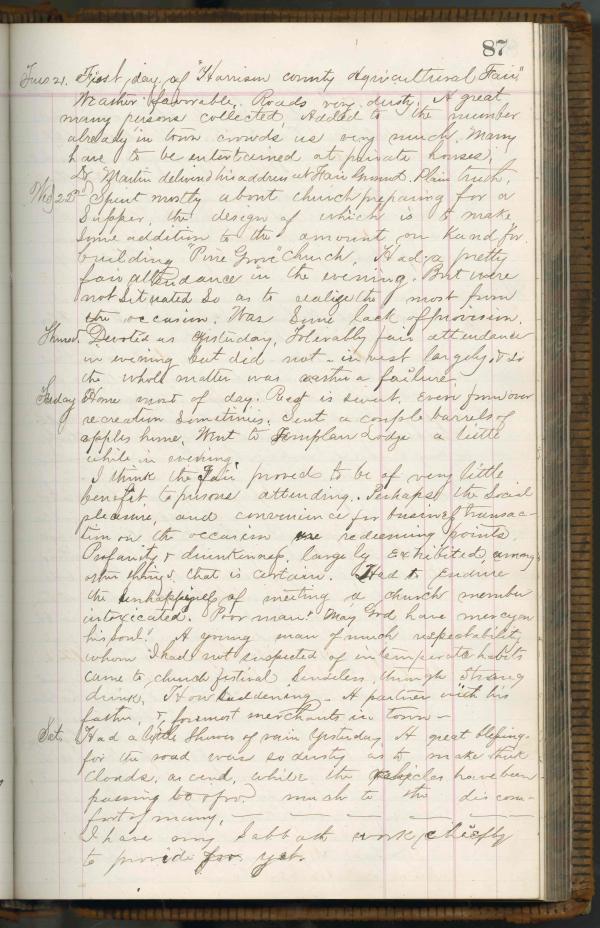 87
Tues 21. First day of "Harrison county Agricultural Fair"
Weather favorable. Roads very dusty. A great
many persons collected, Added to the number
already in town crowds us very much. Many
have to be entertained at private houses.
Dr. Martin delivered his address at Fair Ground. Plain truth.
Wed 22d Spent mostly about church preparing for a
Supper, the design of which is to make
some addition to the amount on hand for
building "Pine Grove" Church. Had a pretty
fair attendance in the evening. But were
not situated so as to realize the most from
the occasion. Was some lack of provision.
Thurs. Devoted as yesterday. Tolerably fair attendance
in evening but did not invest largely, & so
the whole matter was rather a failure.
Friday Home most of day. Rest is sweet. Even from over
recreation sometimes. Sent a couple barrels of
apples home. Went to Templar Lodge a little
while in evening.
I think the Fair proved to be of very little
benefit to persons attending. Perhaps the Social
pleasure, and convenience for business transac-
tion on the occasion are redeeming points.
Profanity & drunkenness, largely exhibited, among
other things, that is certain. Had to endure
the unhappiness of meeting a church member
intoxicated. Poor man! May God have mercy on
his soul! A young man of much respectability
whom I had not suspected of intemperate habits
came to church festival senseless through strong
drink. How saddening. A partner with his
father, & foremost merchants in town —
Sat. Had a little shower of rain yesterday. A great blessing.
for the road was so dusty as to make thick
clouds, ascend, while the vehicles have been
passing to & fro. much to the discom-
fort of many, — — — — —
I have my Sabbath work chiefly
to provide for yet.